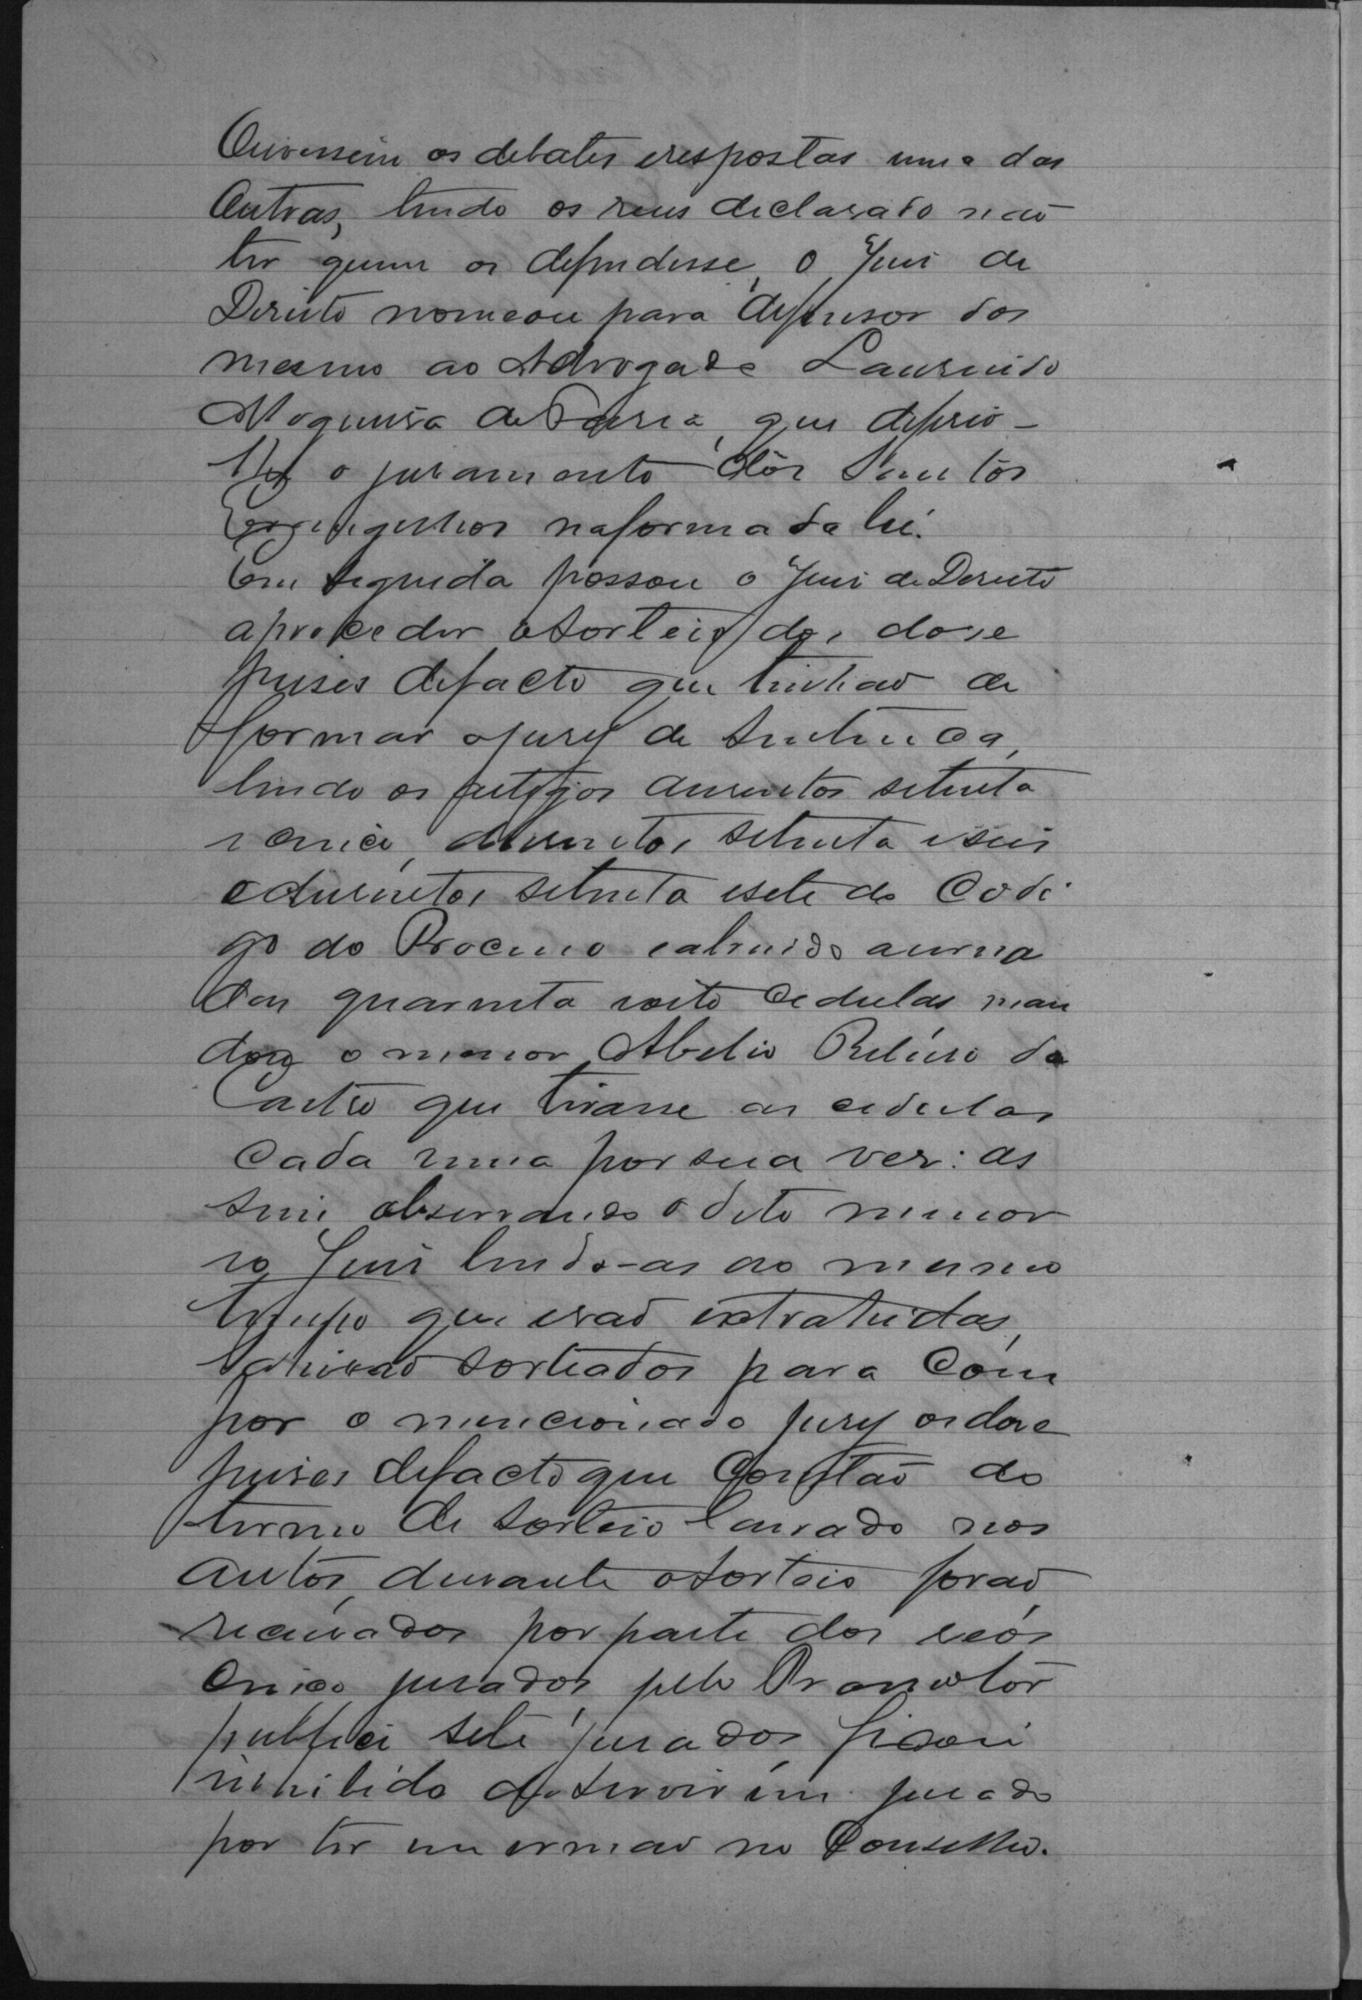 Ouvissem os debates erespostas uma das
Outras, tendo os reus declarado não
ter quem os defendesse, o Juis de
Direito nomeou para defensor dos
mesmo ao Advogado Laurindo
Nogueira de Faria, que deferio-
lhes o juramento dos Santos
Evangelhos naforma da lei.
Em seguida passou o Juis de Dereito
aproceder osorteio dos dose
juises defacto que tinhão de
formar ojury de sentença,
lendo os artigos dusentos setenta
icinco, dusentos setenta eseis
edusentos setenta esete do Codi
go do Processo eabrindo aurna
das quarenta eoito cedulas man
dou o menor Abelio
Castro que tirasse as cedulas
Cada uma por sua ves: as
sim observando o dito menor
eo Juis lendo-as ao mesmo
tempo que erão extrahidas,
sahirão sorteados para Com
por o mencionado jury osdose
juises defacto que Constão do
termo de sorteio lavrado nos
autos, durante osorteio forão
recusados por parte dos reós
Cinco jurados, pelo Promotor
publici sete jurados ficou
inhibido deservir um jurado
por ter um irmão no Conselho.